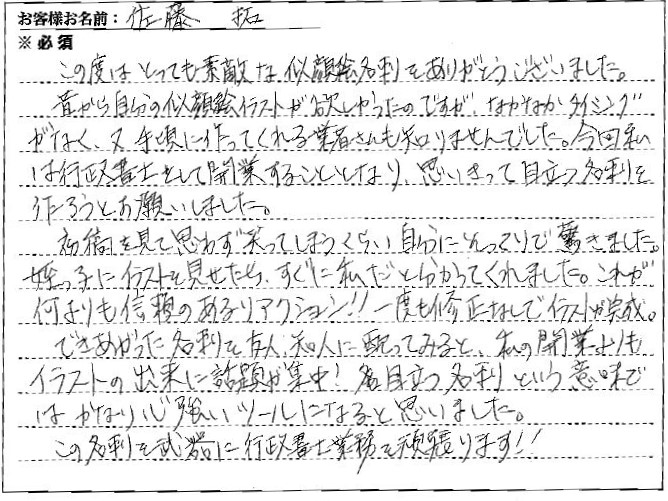 お客様お名前: 佐藤 拓
※必須
この度はとっても素敵な似顔絵名刺をありがとうございました。
昔から自分の似顔絵イラストが欲しかったのですが、なかなかタイミング
がなく、又手頃に作ってくれる業者さんも知りませんでした。今回私
は行政書士として開業することとなり、思いきって目立つ名刺を
作ろうとお願いしました。
原稿を見て思わず笑ってしまうくらい自分にそっくりで驚きました。
姪っ子にイラストを見せたら、すぐに私だと分かってくれました。これが
何よりも信頼のあるリアクション!! 一度も修正なしでイラストが完成。
できあがった名刺を友人、知人に配ってみると、私の開業よりも
イラストの出来に話題が集中! 名目立つ名刺という意味で
はかなり心強いツールになると思いました。
この名刺を武器に行政書士業務を頑張ります!!